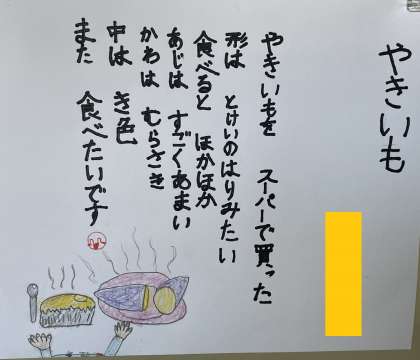 やきいも
やきいもを スーパーで買った
形は とけいのはりみたい
食べると ほかほか
あじは すごくあまい
かわは むらさき
中は き色
また 食べたいです